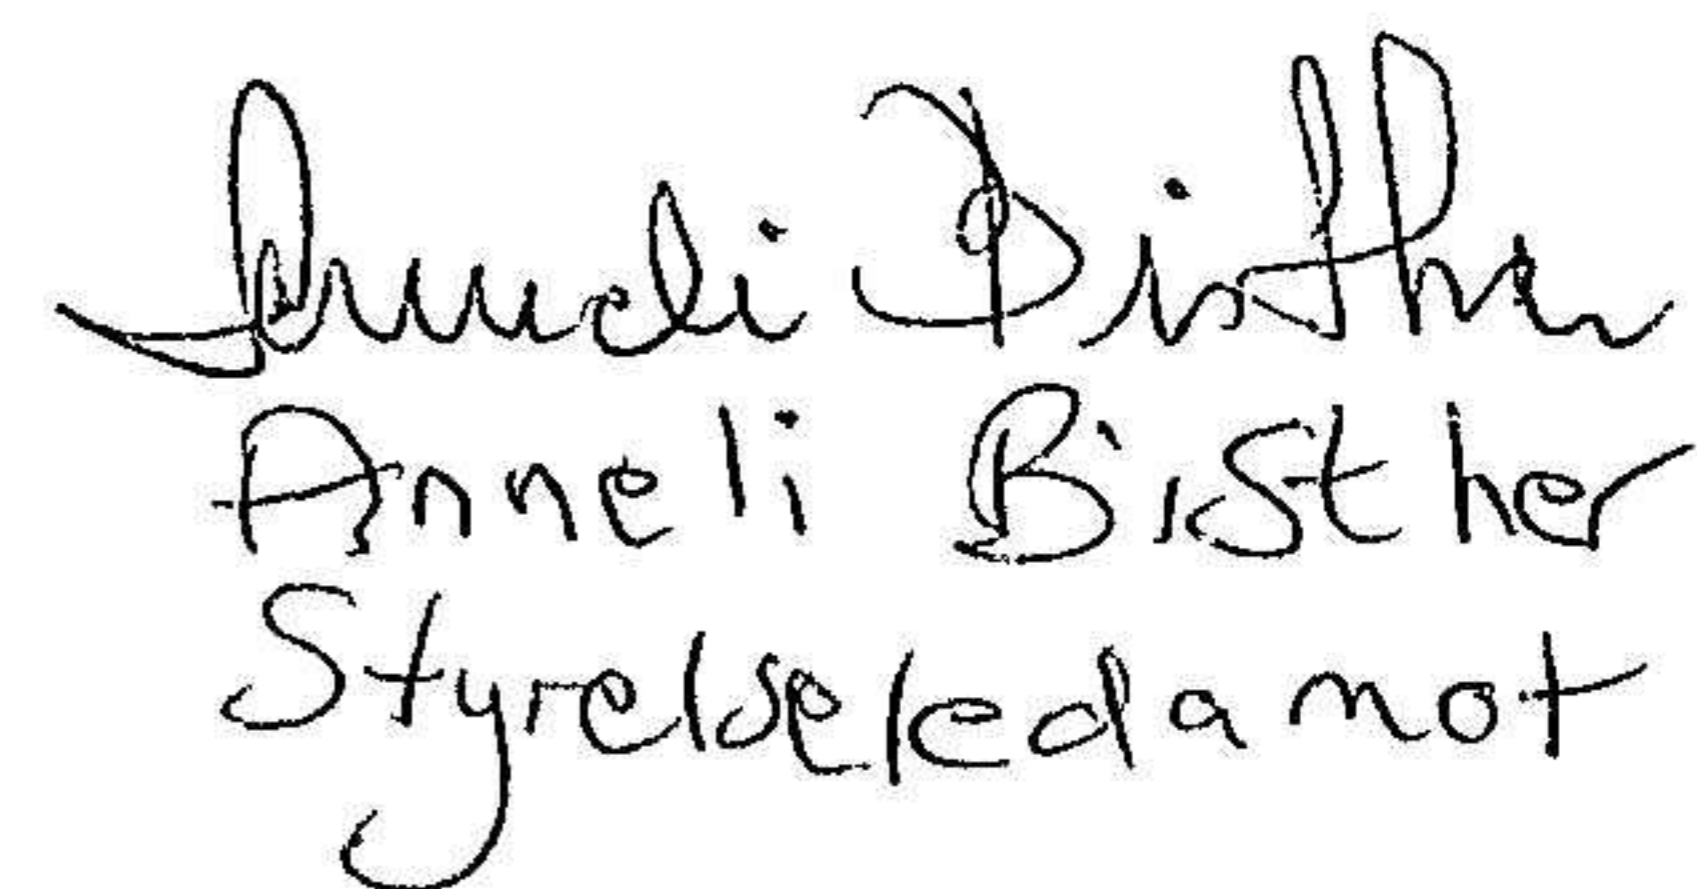 Anneli Bisther
Anneli Bisther
Styrelseledamot